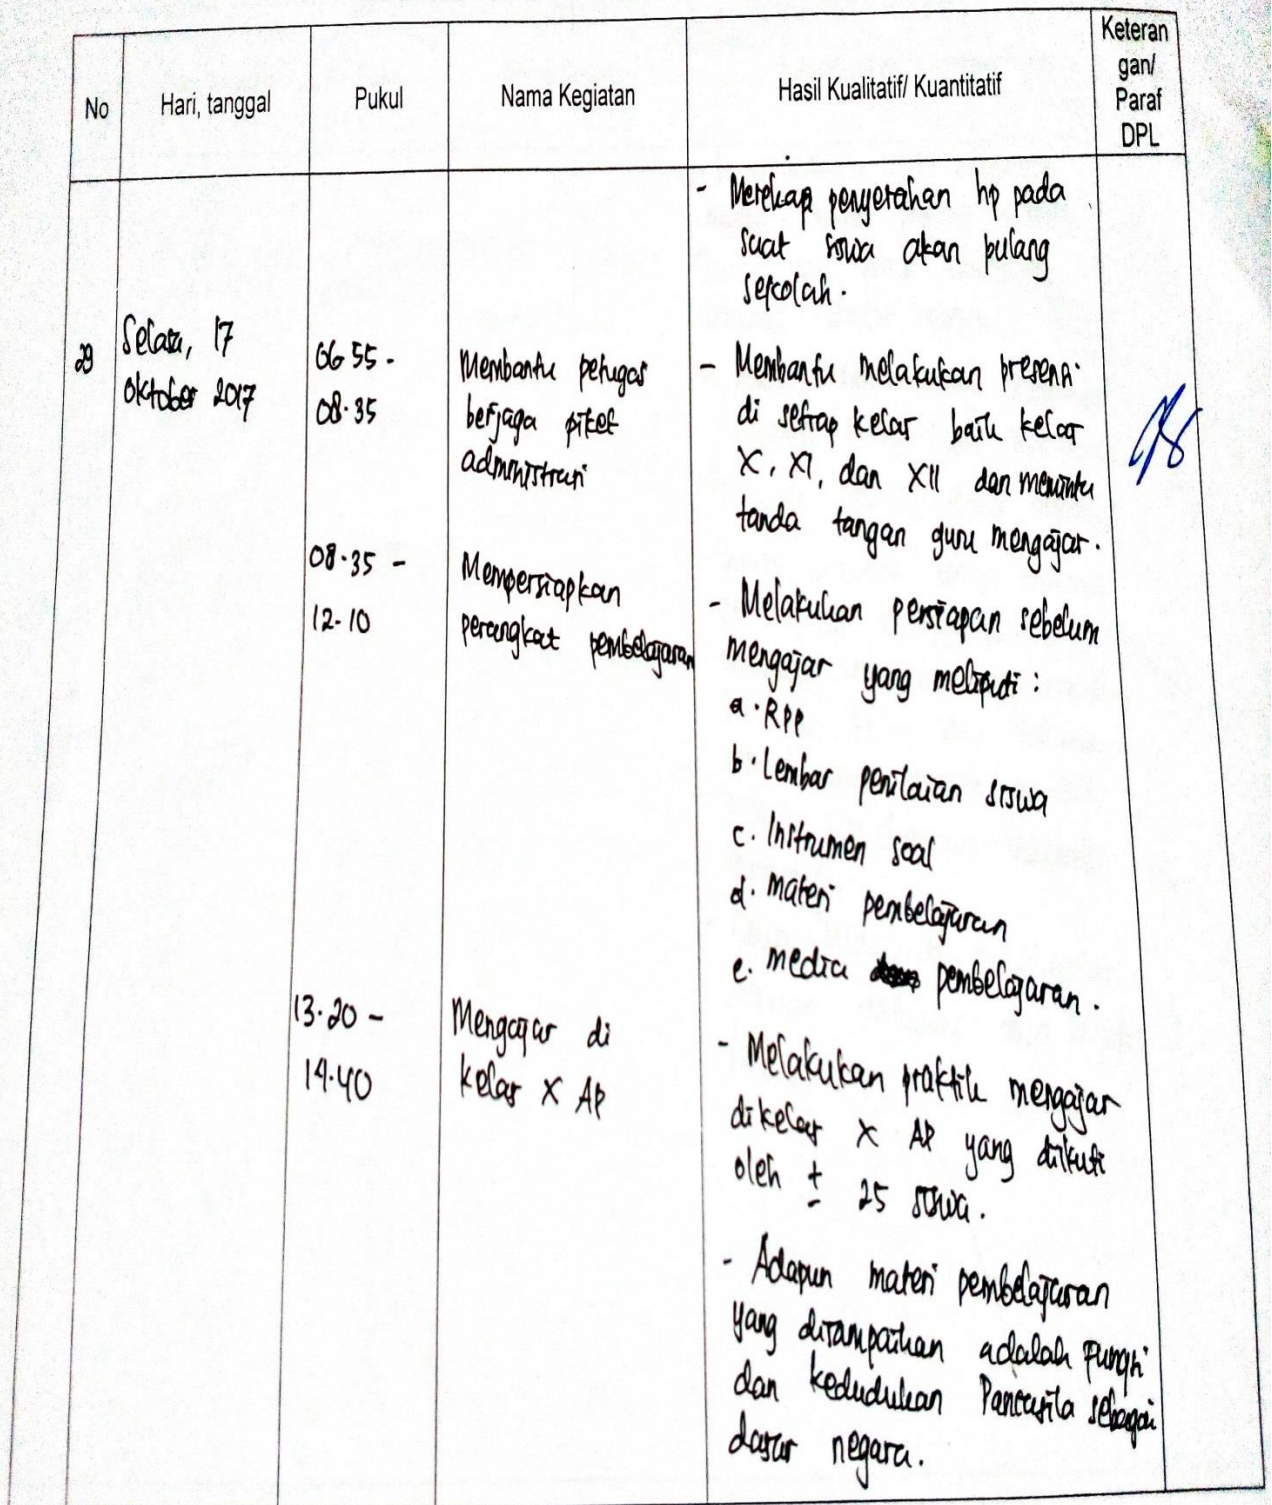 No
Hari, tanggal
Pukul
Nama Kegiatan
Hasil Kualitatif/ Kuantitatif
Keteran
gan/
Paraf
DPL
- Merekap penyerahan hp pada
saat siswa akan pulang
sekolah.
29
Selasa, 17
Oktober 2017
06 55 -
08.35
Membantu petugas
berjaga piket
administrasi
- Membantu melakukan presensi
di setiap kelas baik kelas
X, XI, dan XII dan meminta
tanda tangan guru mengajar.
08.35 -
12.10
Mempersiapkan
perangkat pembelajaran
- Melakukan persiapan sebelum
mengajar yang meliputi :
a. RPP
b. Lembar penilaian siswa
c. Instrumen soal
d. materi pembelajaran
e. media pembelajaran.
13.20 -
14.40
Mengajar di
kelas X AP
- Melakukan praktik mengajar
dikelas X AP yang diikuti
oleh ± 25 siswa.
- Adapun materi pembelajaran
yang disampaikan adalah Fungsi
dan kedudukan Pancasila sebagai
dasar negara.